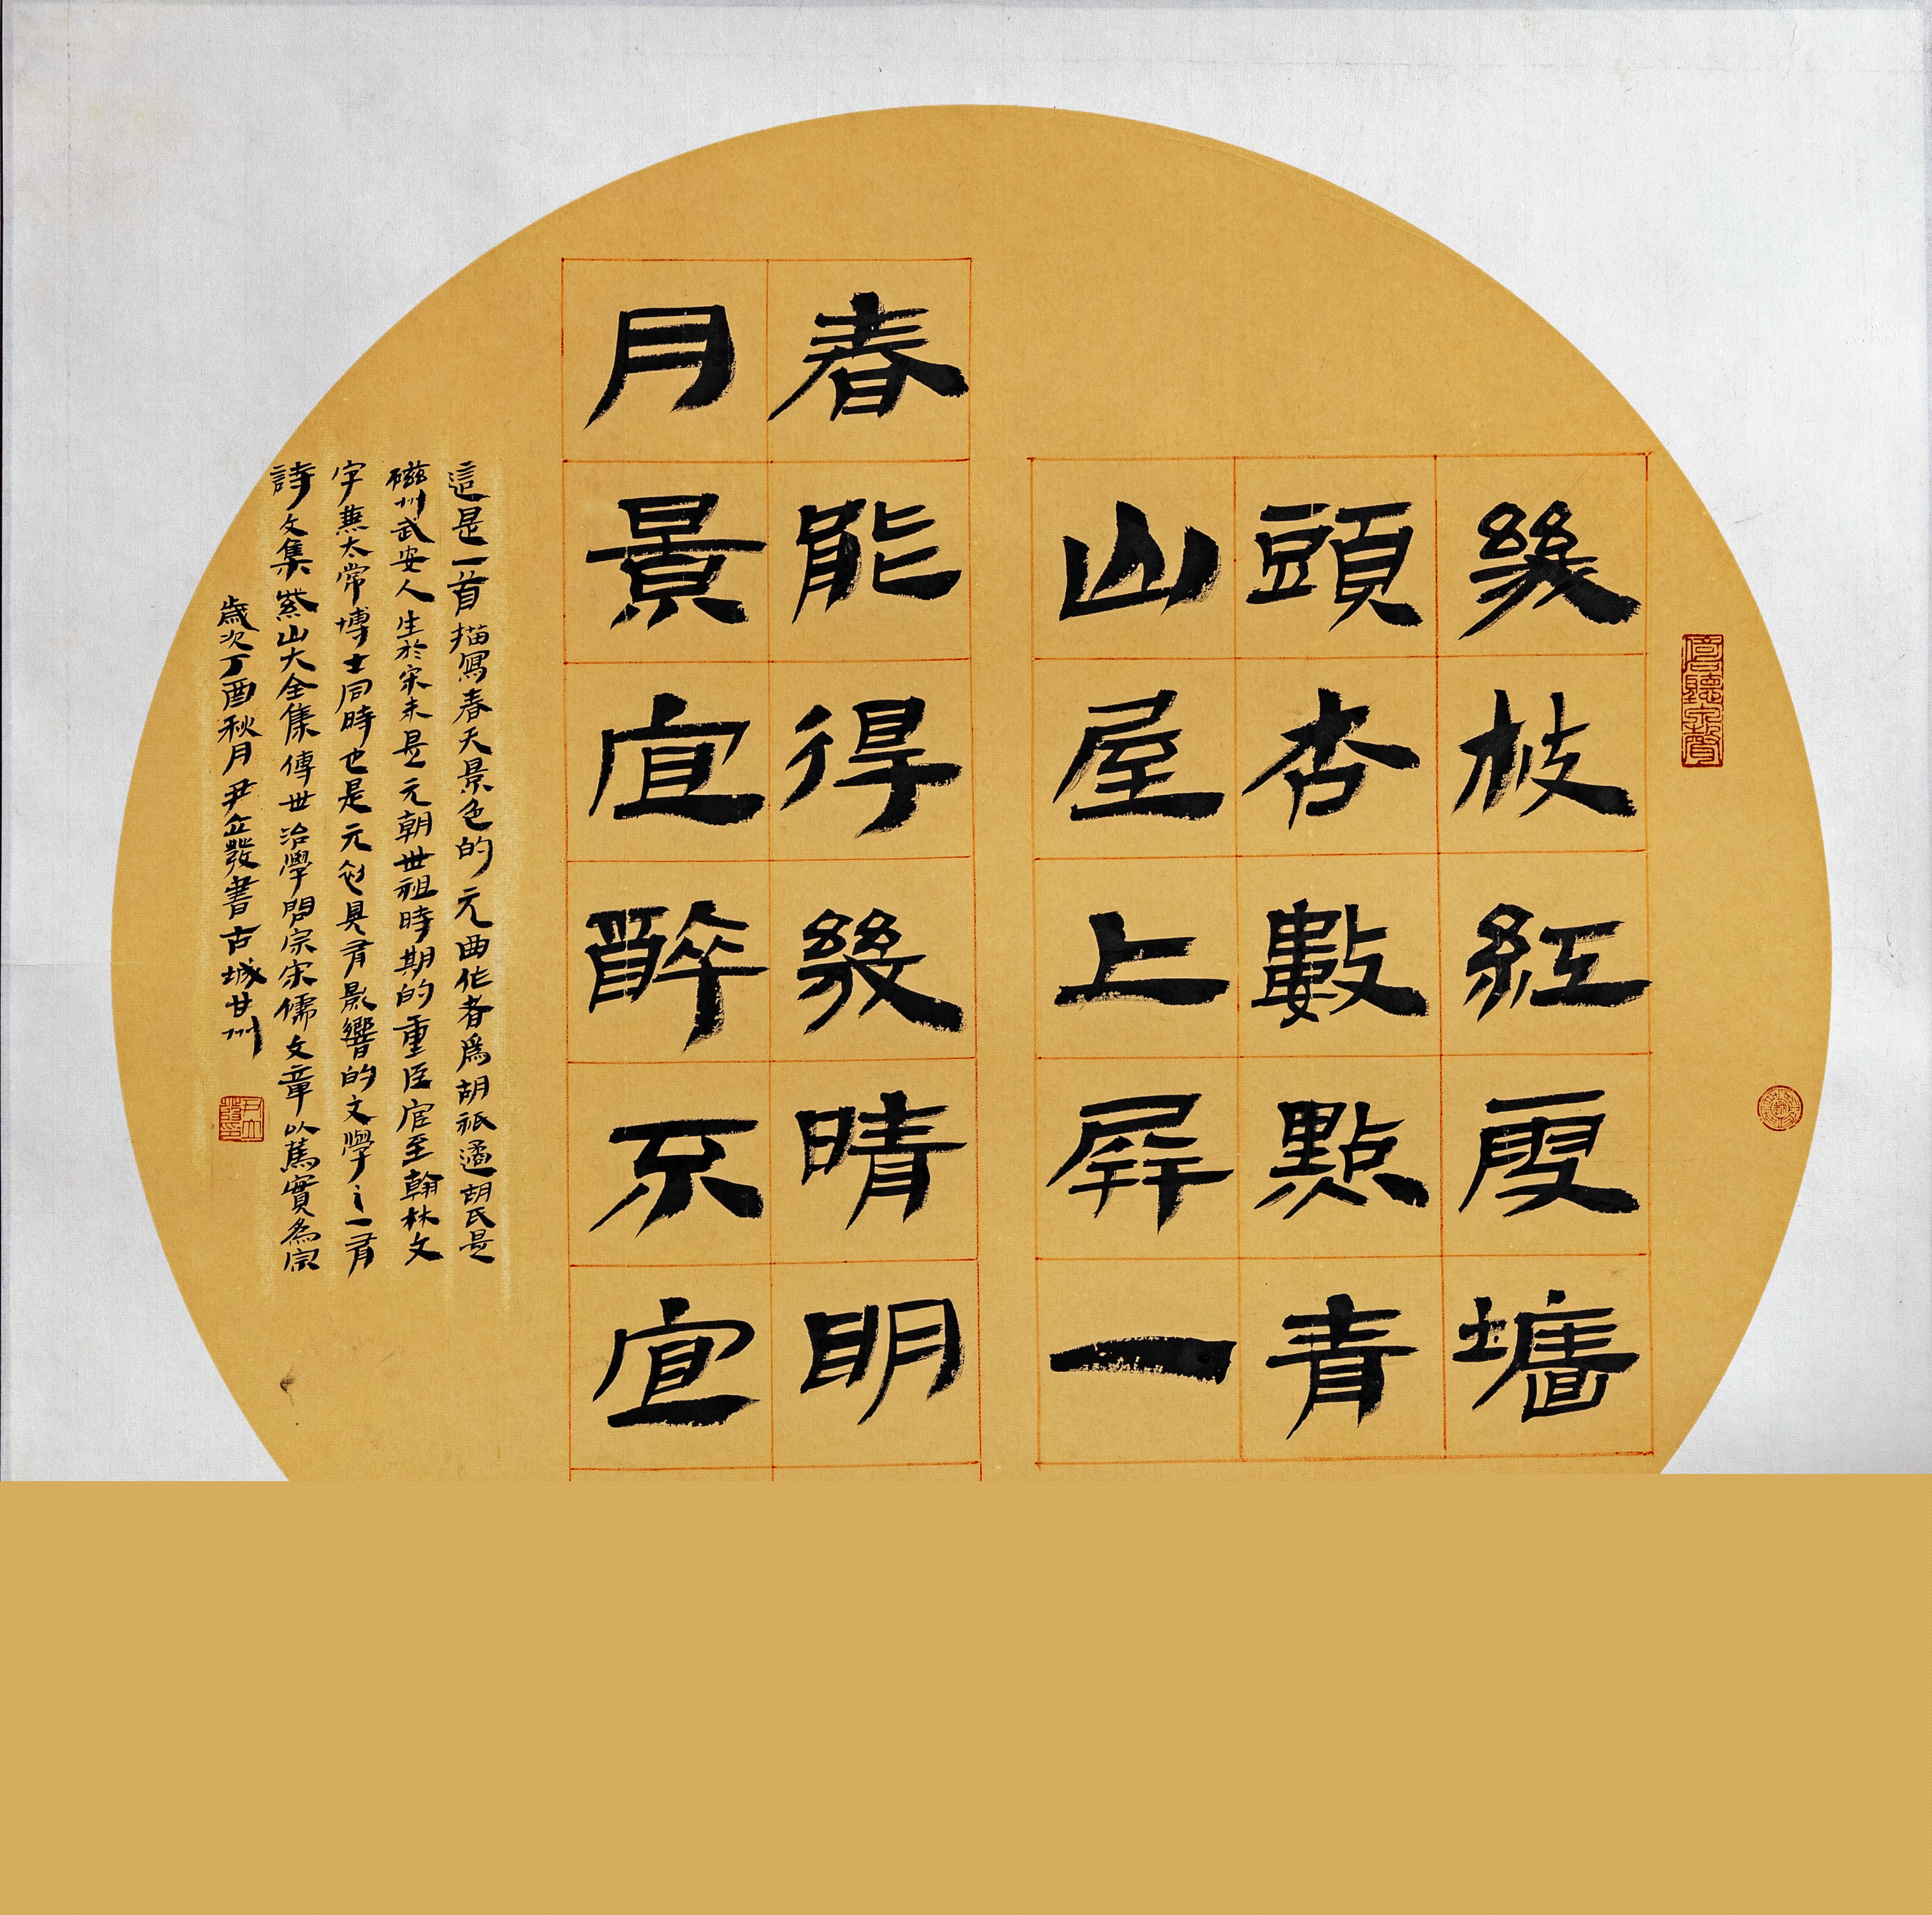 幾枝紅雪墻
頭杏數點青
山屋上屏一
春能得幾晴明
月景宜醉不宜
這是一首描寫春天景色的元曲作者爲胡祗遹胡氏是
磁州武安人生於宋末是元朝世祖時期的重臣官至翰林文
字兼太常博士同時也是元初具有影響的文學之一有
詩文集紫山大全集傳世治學問宗宋儒文章以篤實爲宗
歲次丁酉秋月尹立發書古城甘州